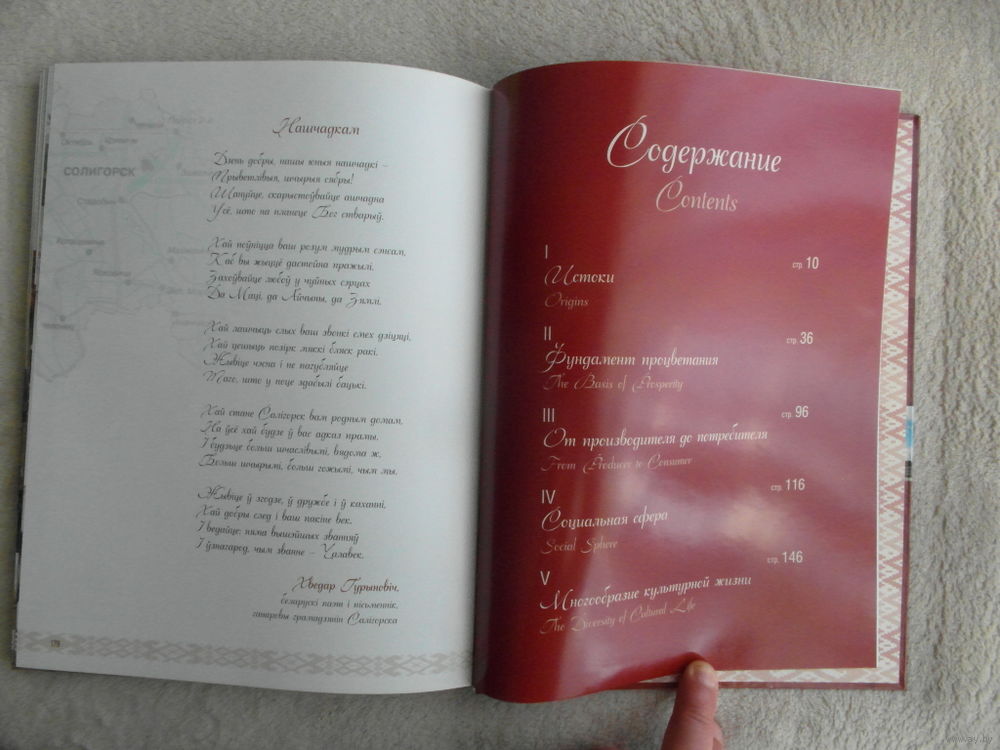 Нашчадкам
Дзень добры, нашы юныя нашчадкі –
Прыветлівыя, шчырыя сябры!
Шануйце, скарыстоўвайце ашчадна
Усё, што на планеце Бог стварыў.
Хай поўніцца ваш розум мудрым сэнсам,
Каб вы жыццё дастойна пражылі,
Захоўвайце любоў у чуйных сэрцах
Да Маці, да Айчыны, да Зямлі.
Хай лашчыць слых ваш звонкі смех дзіцячы,
Хай цешыць позірк мяккі бляск ракі.
Жывіце чэсна і не пагубляйце
Таго, што у поце здабылі бацькі.
Хай стане Салігорск вам родным домам,
На ўсё хай будзе ў вас адказ прамы.
І будзьце больш шчаслівымі, вядома ж,
Больш шчырымі, больш гожымі, чым мы.
Жывіце ў згодзе, ў дружбе і ў каханні,
Хай добры след і ваш пакіне век.
І ведайце: няма вышэйшых званняў
І ўзнагарод, чым званне – Чалавек.
Хведар Гурыновіч,
беларускі паэт і пісьменнік,
ганаровы грамадзянін Салігорска
СОЛИГОРСК
179
Содержание
Contents
I
стр. 10
Истоки
Origins
II
стр. 36
Фундамент процветания
The Basis of Prosperity
III
стр. 96
От производителя до потребителя
From Producer to Consumer
IV
стр. 116
Социальная сфера
Social Sphere
V
стр. 146
Многообразие культурной жизни
The Diversity of Cultural Life
www.ay.by